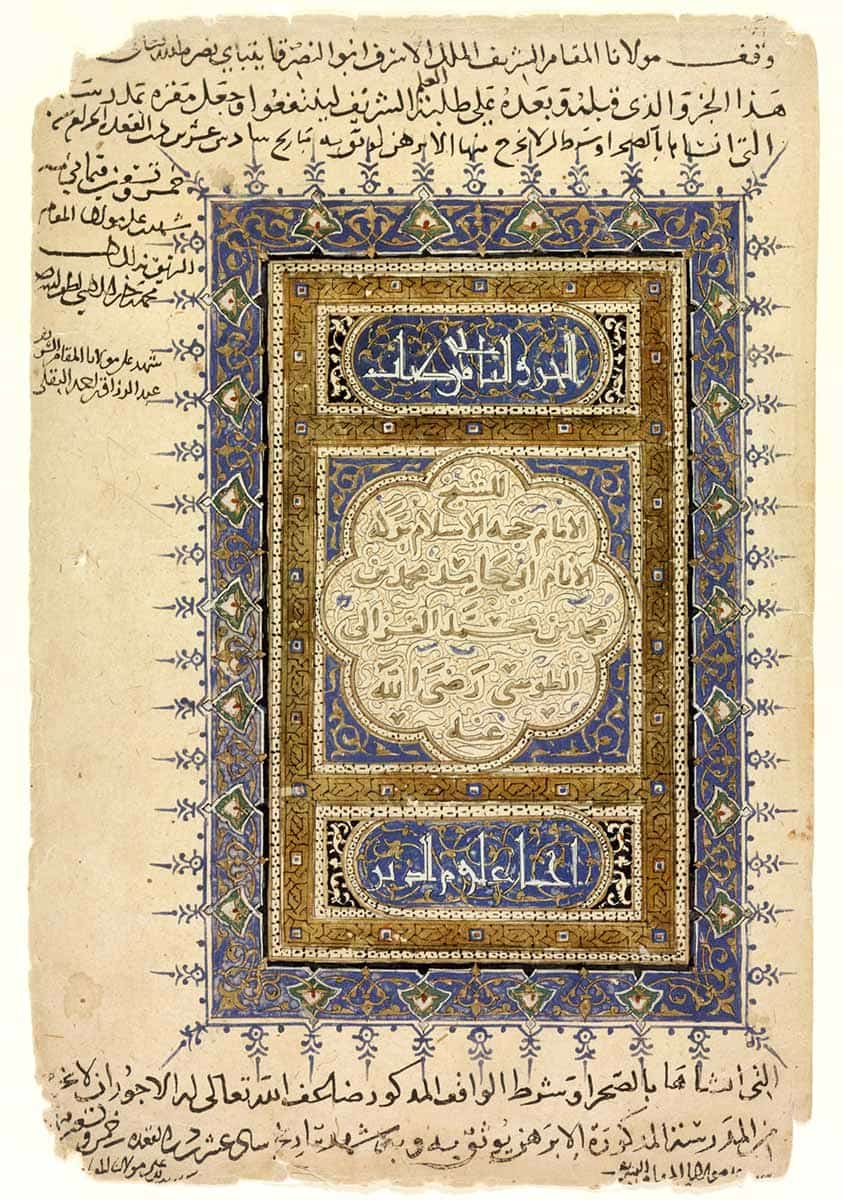 وقف مولانا المقام الشريف الملك الاشرف ابو النصر قايتباي نصره الله
هذا الجزو الذي قبله وبعده على طلبة العلم الشريف لينتفعوا به وجعل مقره بمدرسته
التي انشاها بالصحرا وشرط ان لا يخرج منها الا برهن يوثق به بتاريخ سادس عشرين ذي القعدة الحرام سنة
خمس وتسعين وثمانمائة
شهدت على مولانا المقام
الشريف بذلك
محمد
شهد على مولانا المقام الشريف
عبد الرزاق احمد البقلي
الجزو الثالث من كتاب
للشيخ
الامام حجة الاسلام بركة
الانام ابي حامد محمد بن
محمد بن محمد الغزالي
الطوسي رضي الله
عنه
احياء علوم الدين
التي انشاها بالصحرا وشرط الواقف المذكور ضاعف الله تعالى له الاجور ان لا يخرج
من المدرسة المذكورة الا برهن يوثق به وبه شهد بتاريخ سادس عشرين ذي القعدة سنة خمس وتسعين